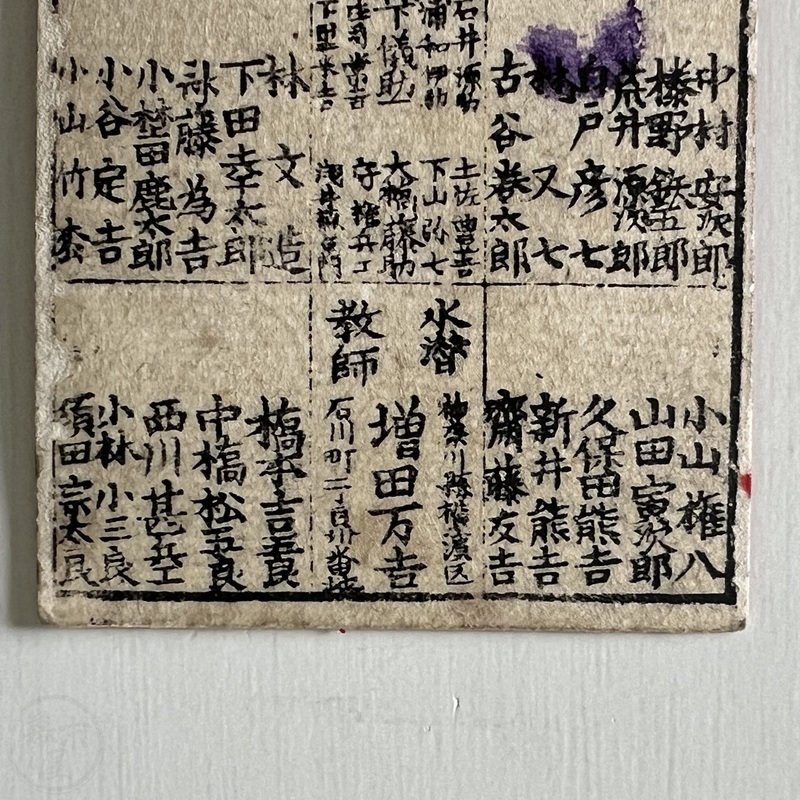 中村安次郎
榛野鉄五郎
荒井源次郎
白戸彦七
林又七
古谷巻太郎
石井源助
浦和伊助
下儀助
庄司常吉
下里米吉
土佐豊吉
下山弥七
大橋藤助
守権兵エ
浅井
林文造
下田幸太郎
藤為吉
小埜田鹿太郎
小谷定吉
小山竹松
小山権八
山田寅次郎
久保田熊吉
新井熊吉
齋藤友吉
水潜
教師
神奈川縣横濱区
増田万吉
石川町二丁目
橋本吉五良
中橋松五良
西川甚兵エ
小林小三良
須田宗太良